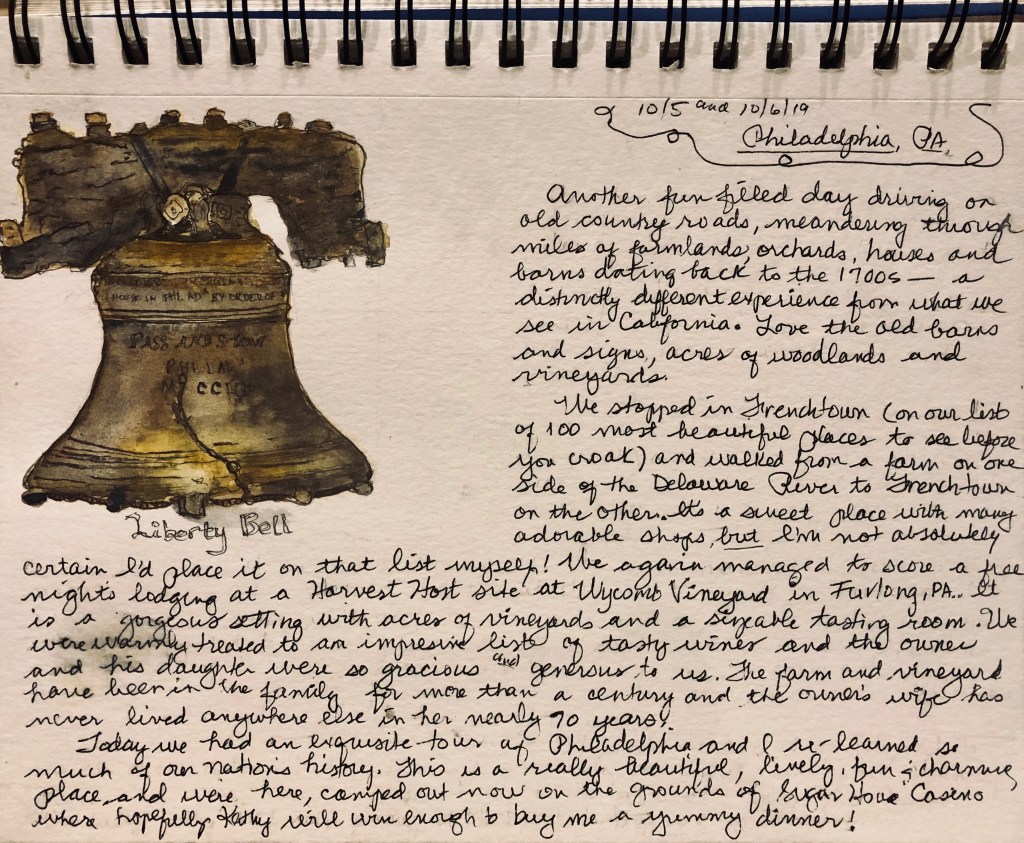 10/5 and 10/6/19
Philadelphia, PA.
Another fun filled day driving on
old country roads, meandering through
miles of farmlands, orchards, houses and
barns dating back to the 1700s — a
distinctly different experience from what we
see in California. Love the old barns
and signs, acres of woodlands and
vineyards.
We stopped in Frenchtown (on our list
of 100 most beautiful places to see before
you croak) and walked from a farm on one
side of the Delaware River to Frenchtown
on the other. It's a sweet place with many
adorable shops, but I'm not absolutely
certain I'd place it on that list myself! We again managed to score a free
nights lodging at a Harvest Host site at Wycomb Vineyard in Furlong, PA.. It
is a gorgeous setting with acres of vineyards and a sizeable tasting room. We
were warmly treated to an impresive list of tasty wines and the owner
and his daughter were so gracious and generous to us. The farm and vineyard
have been in the family for more than a century and the owner's wife has
never lived anywhere else in her nearly 90 years!
Today we had an exquisite tour of Philadelphia and I re-learned so
much of our nation's history. This is a really beautiful, lively, fun & charming
place, and we're here, camped out now on the grounds of Sugar House Casino
where hopefully Kathy will win enough to buy me a yummy dinner!
HOUSE IN PHILADA BY ORDER OF
PASS AND STOW
PHILADA
Liberty Bell